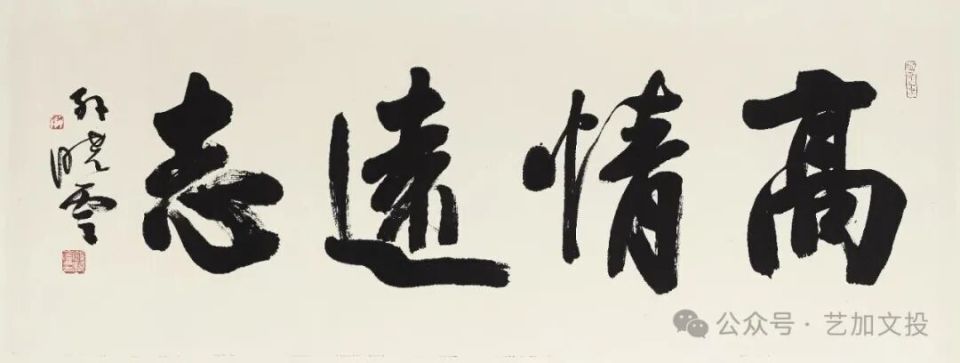 高情遠志
孙晓雲
公众号·艺加文投